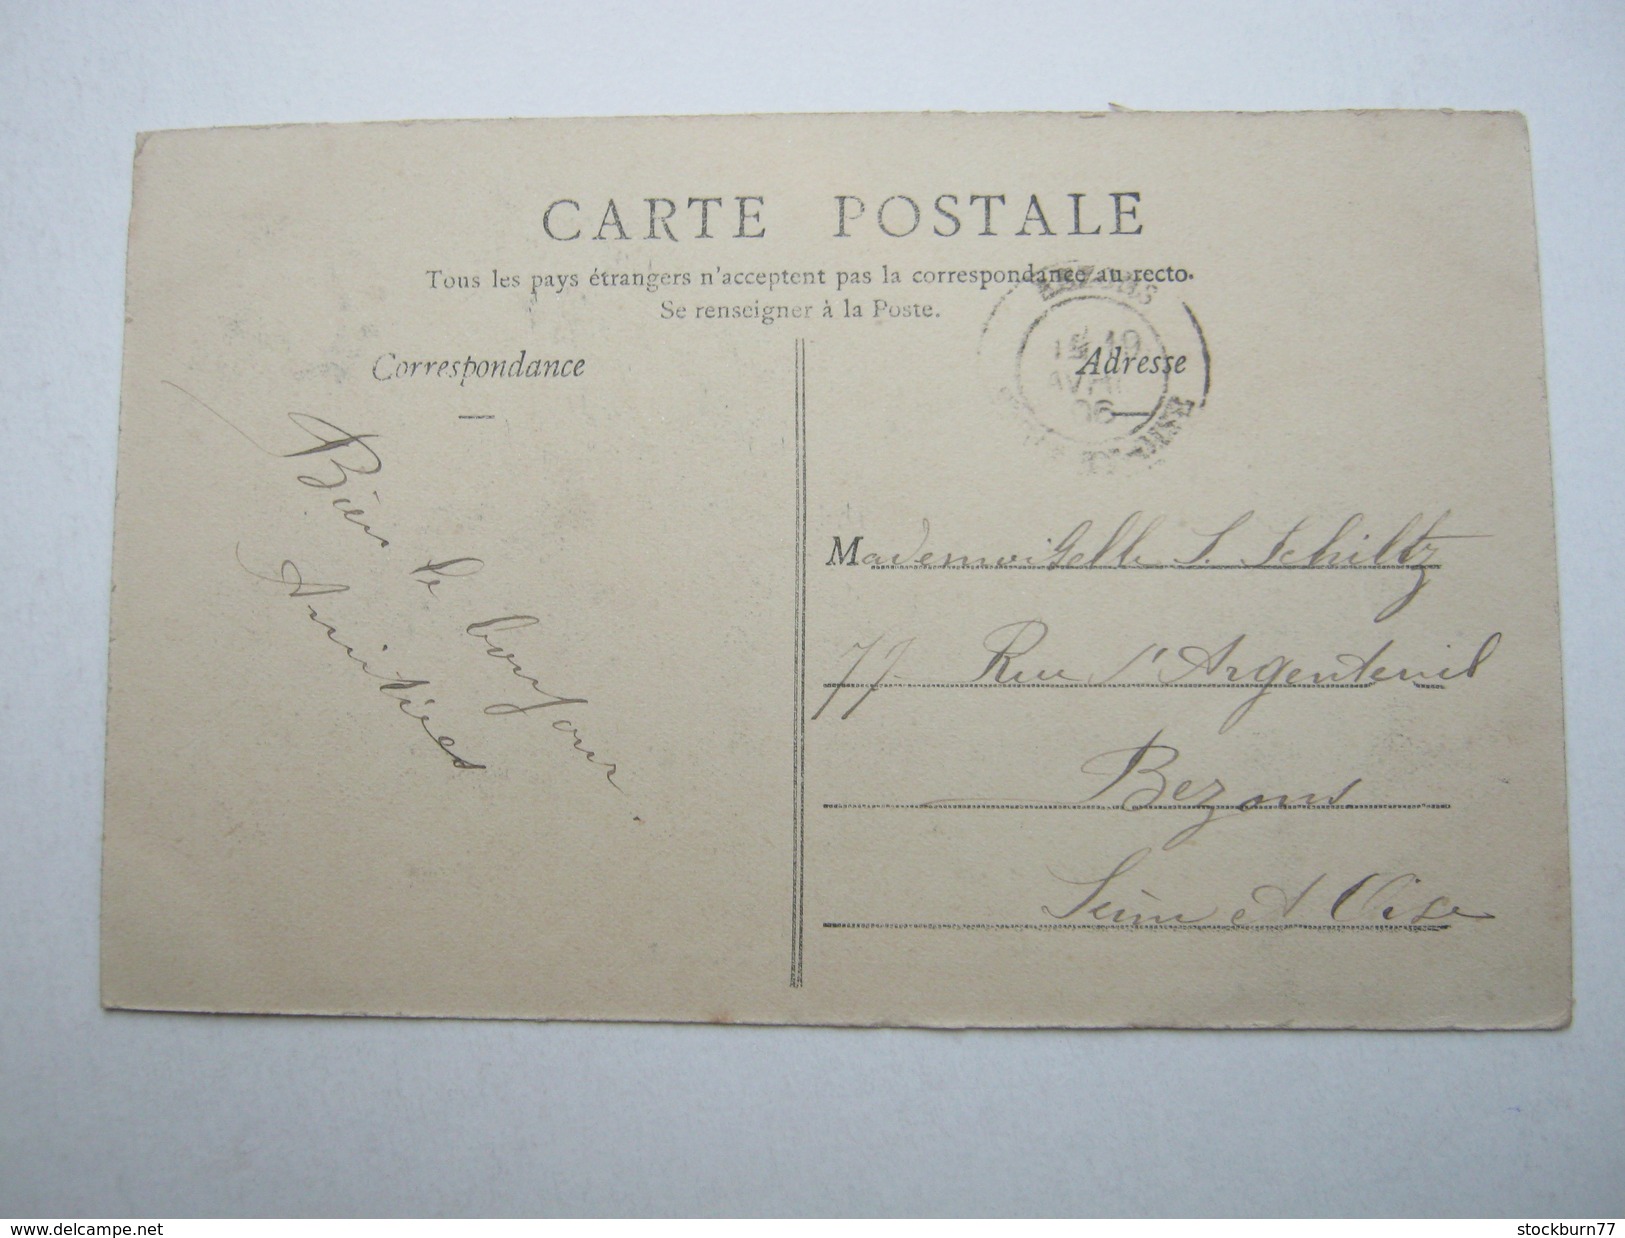 CARTE POSTALE
Tous les pays étrangers n'acceptent pas la correspondance au recto.
Se renseigner à la Poste.
Correspondance
Adresse
BEZONS
19
AVRIL
06
Bien le bonjour.
Amitiées
Mademoiselle S. Schiltz
77 Rue d'Argenteuil
Bezons
Seine et Oise
www.delcampe.net
stockburn77